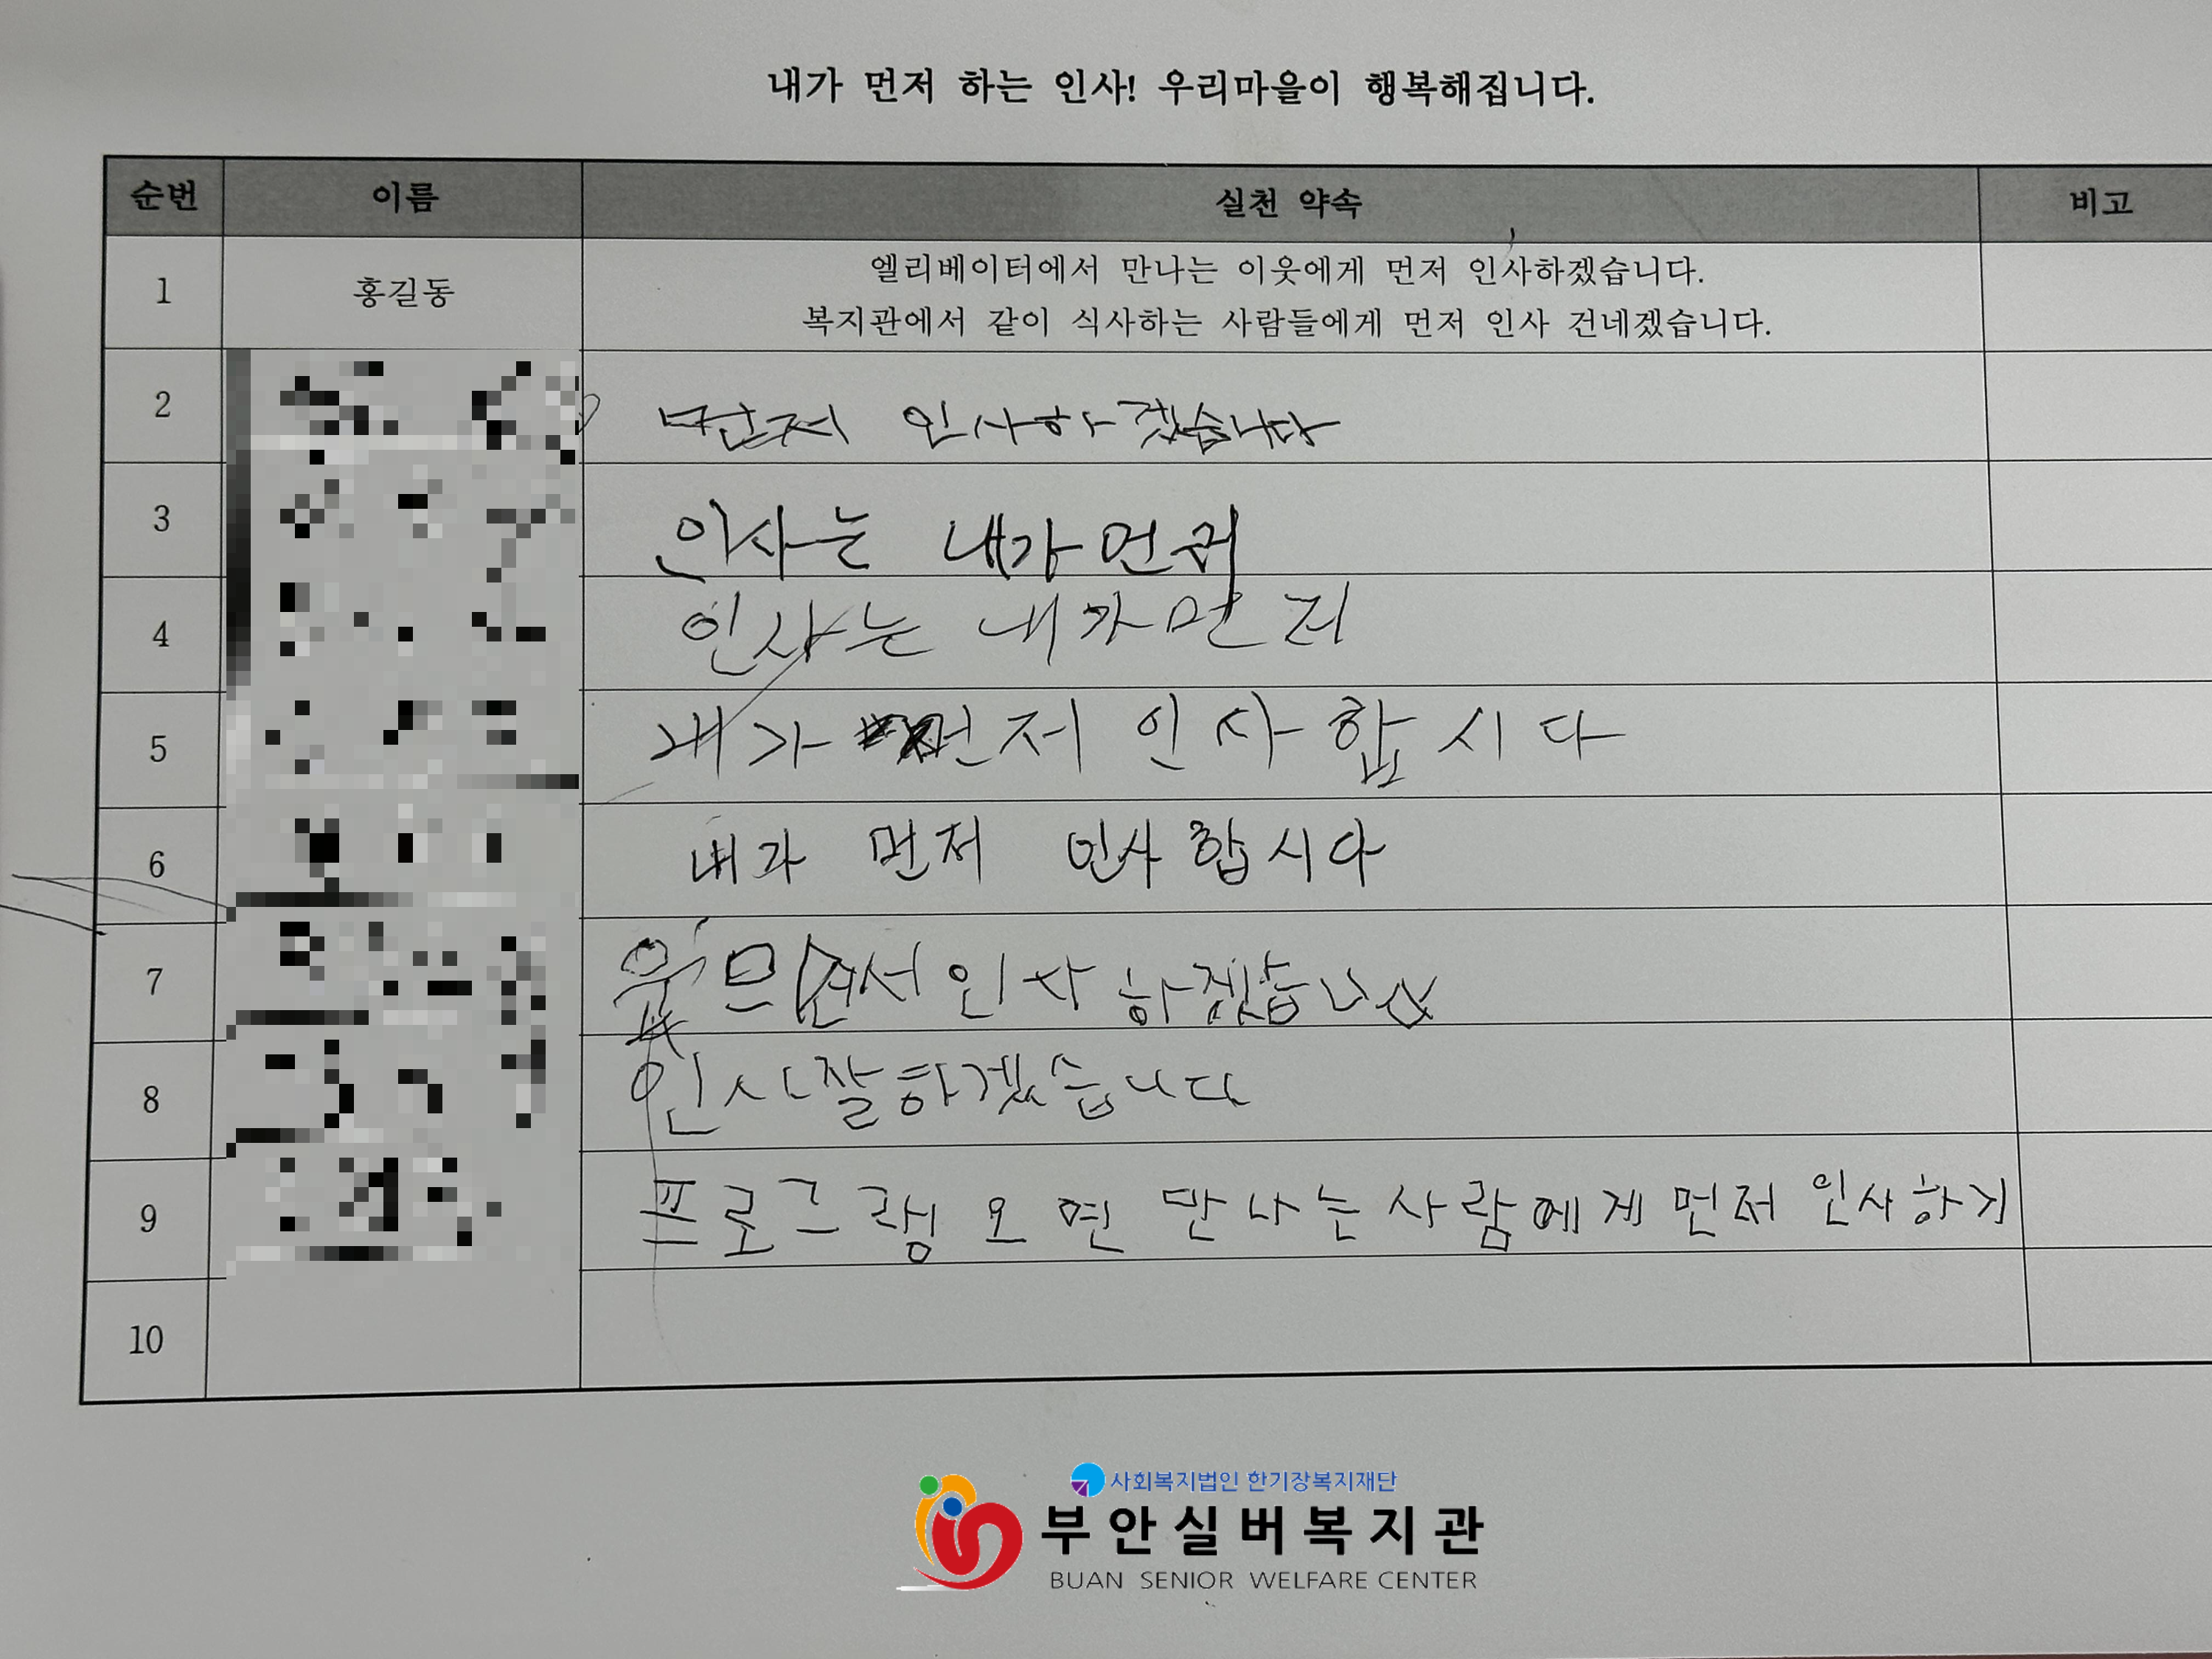 내가 먼저 하는 인사! 우리마을이 행복해집니다.
순번 이름 실천 약속 비고
1 홍길동 엘리베이터에서 만나는 이웃에게 먼저 인사하겠습니다.
복지관에서 같이 식사하는 사람들에게 먼저 인사 건네겠습니다.
2 먼저 인사하겠습니다
3 인사는 내가먼저
4 인사는 내가먼저
5 내가 먼저 인사합시다
6 내가 먼저 인사합시다
7 인사하겠습니다
8 인사잘하겠습니다
9 프로그램 오면 만나는사람에게 먼저 인사하기
10
사회복지법인 한기장복지재단
부안실버복지관
BUAN SENIOR WELFARE CENTER